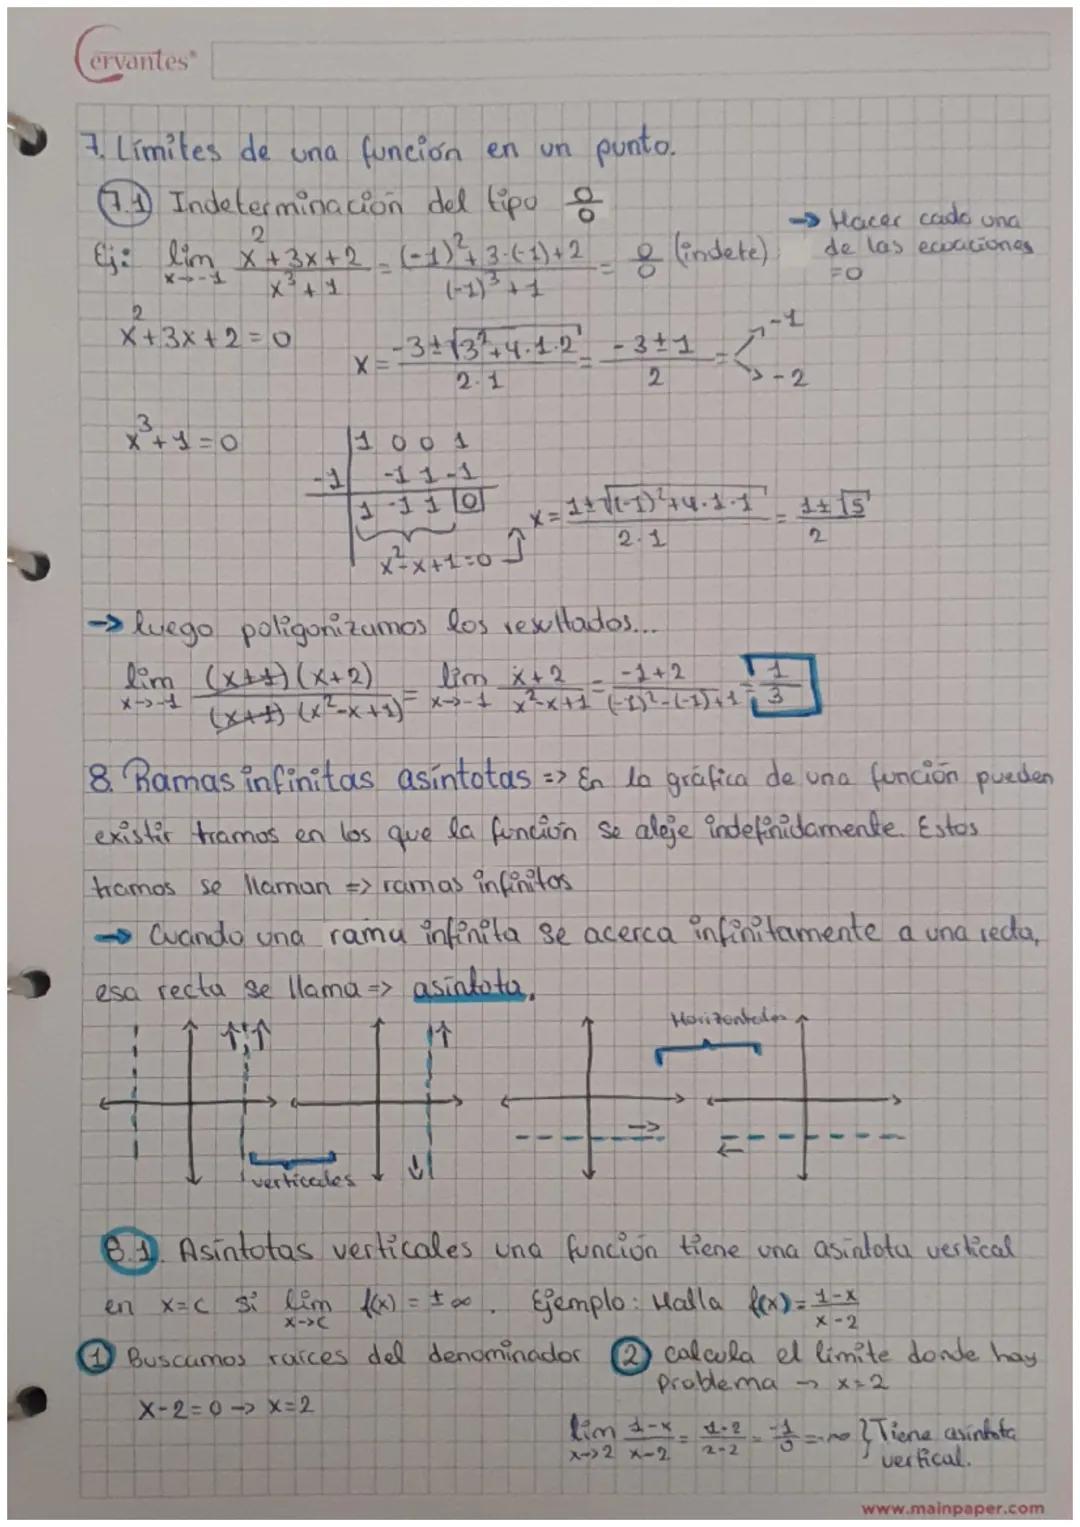 Cervantes®
7. Límites de una función en un punto.
7.1 Indeterminación del tipo 0/0
→ Hacer cada una de las ecuaciones =0
Ej: lim x→-1 (x²+3x+2)/(x³+1) = ((-1)²+3·(-1)+2)/((-1)³+1) = 0/0 (indete)
x²+3x+2=0   x = (-3±√(3²+4·1·2))/(2·1) = (-3±1)/2 = -1, -2
x³+1=0
1 0 0 1
-1 | -1 1 -1
1 -1 1 0
x²-x+1=0   x = (1±√((-1)²+4·1·1))/(2·1) = (1±√5)/2
→ luego poligonizamos los resultados...
lim x→-1 ((x+1)(x+2))/((x+1)(x²-x+1)) = lim x→-1 (x+2)/(x²-x+1) = (-1+2)/((-1)²-(-1)+1) = 1/3
8. Ramas infinitas asíntotas => En la gráfica de una función pueden
existir tramos en los que la función se aleje indefinidamente. Estos
tramos se llaman => ramas infinitas
→ Cuando una rama infinita se acerca infinitamente a una recta,
esa recta se llama => asíntota.
Horizontales
verticales
8.1. Asíntotas verticales una función tiene una asíntota vertical
en x=c si lim x→c f(x) = ±∞. Ejemplo: Halla f(x) = (1-x)/(x-2)
1 Buscamos raíces del denominador
x-2=0 → x=2
2 calcula el límite donde hay
problema → x=2
lim x→2 (1-x)/(x-2) = (1-2)/(2-2) = -1/0 = -∞ } Tiene asíntota
vertical.
www.mainpaper.com